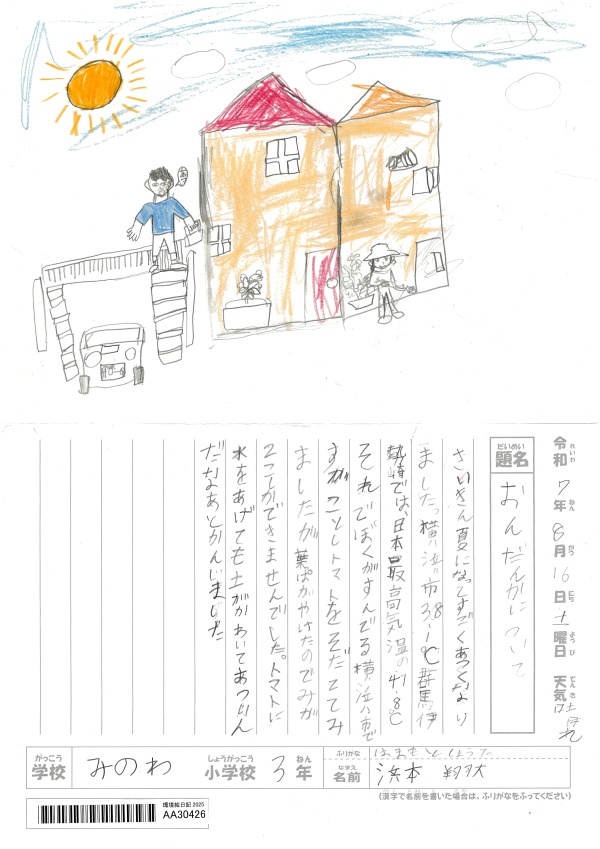 令和7年8月16日土曜日 天気 晴れ
れいわ ねん がつ にち ようび てんき
だいめい
題名
おんだんかについて
さいきん夏になってすごくあつくなり
ました。横浜市38.1℃群馬伊
勢崎では、日本最高気温の41.8℃
それでぼくがすんでる横浜市で
すがことしトマトをそだててみ
ましたが葉ぱがやけたのでみが
2こしかできませんでした。トマトに
水をあげても土がかわいてあついん
だなあとかんじました
がっこう しょうがっこう ねん
学校 みのわ 小学校 3年
ふりがな はまもとしょうた
なまえ
名前 浜本 翔太
(漢字で名前を書いた場合は、ふりがなをふってください)
環境絵日記 2025
AA30426